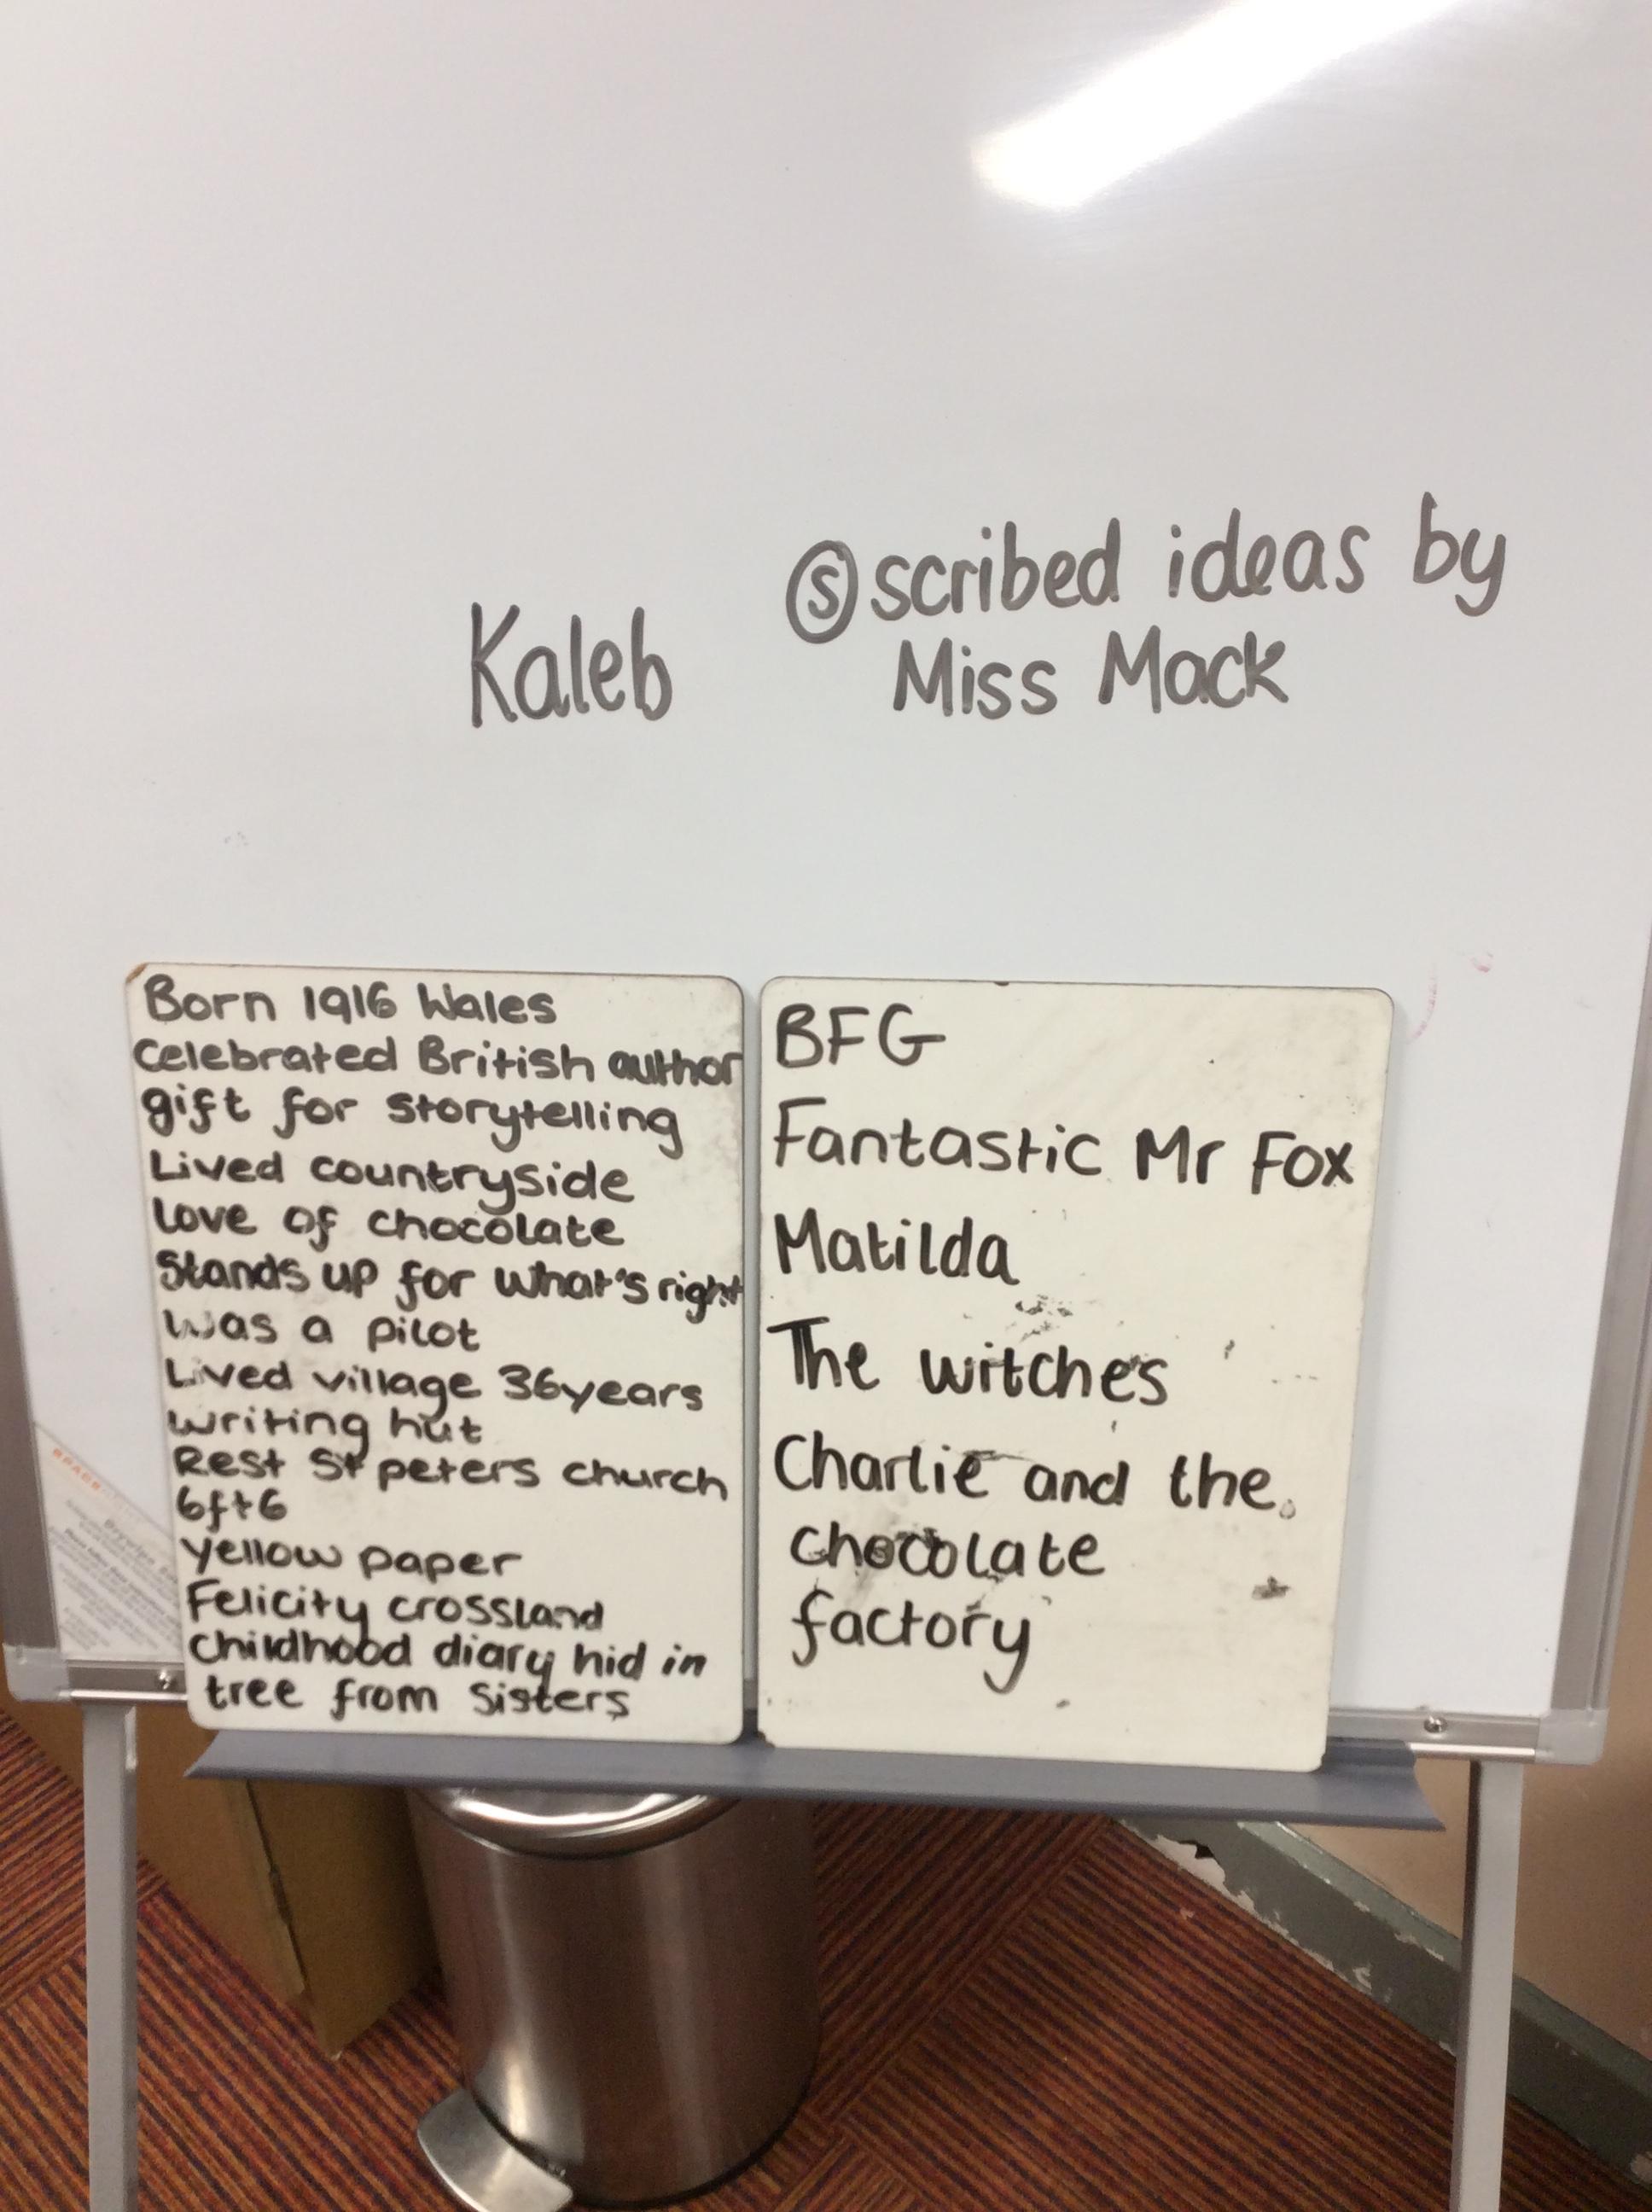 Kaleb
Ⓢ scribed ideas by
Miss Mack
Born 1916 Wales
Celebrated British author
gift for storytelling
Lived countryside
love of chocolate
Stands up for what's right
was a pilot
Lived village 36years
writing hut
Rest St peters church
6ft6
yellow paper
Felicity crossland
childhood diary hid in
tree from sisters
BFG
Fantastic Mr Fox
Matilda
The witches
Charlie and the
chocolate
factory